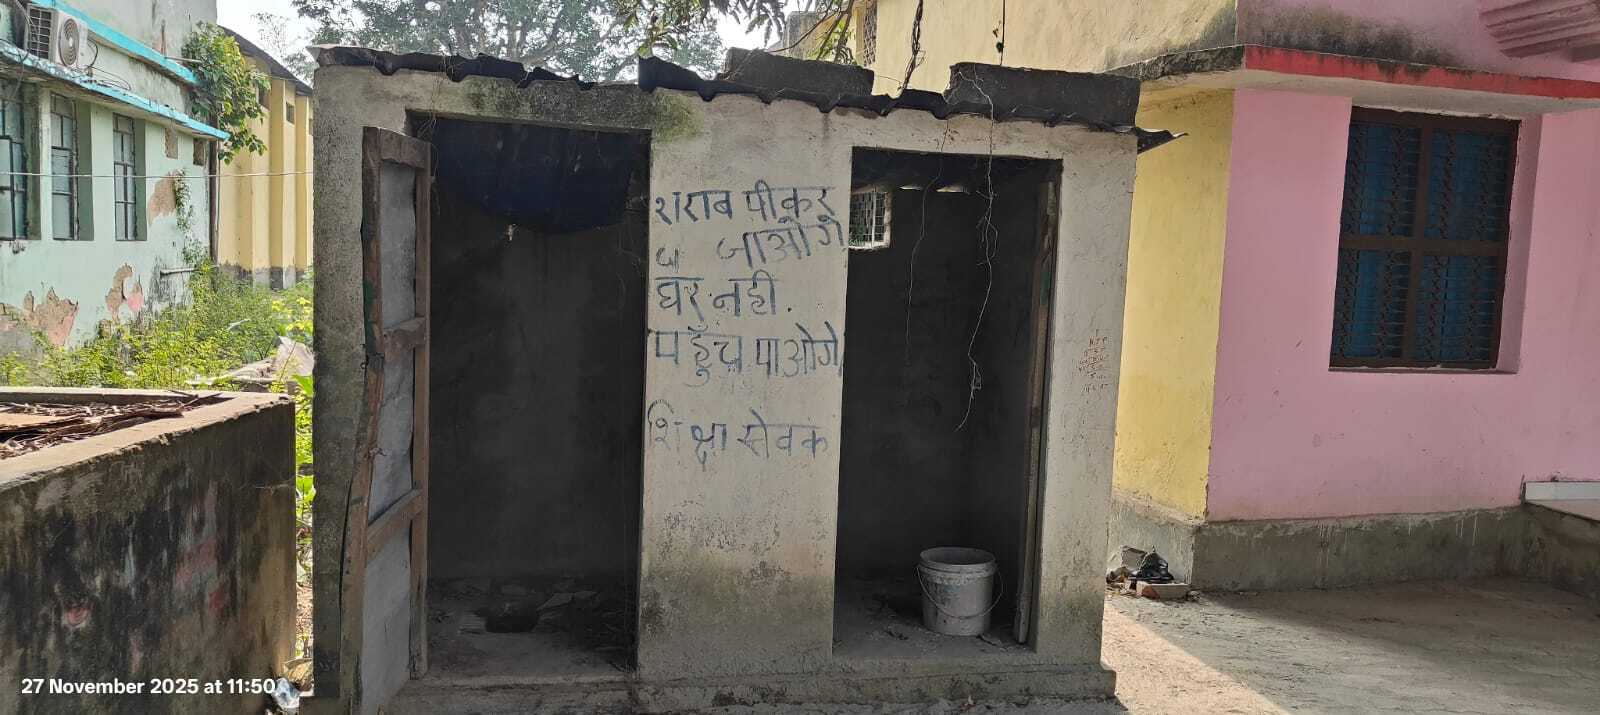 शराब पीकर
जाओगे
घर नही.
पहुँच पाओगे
शिक्षा सेवक
27 November 2025 at 11:50